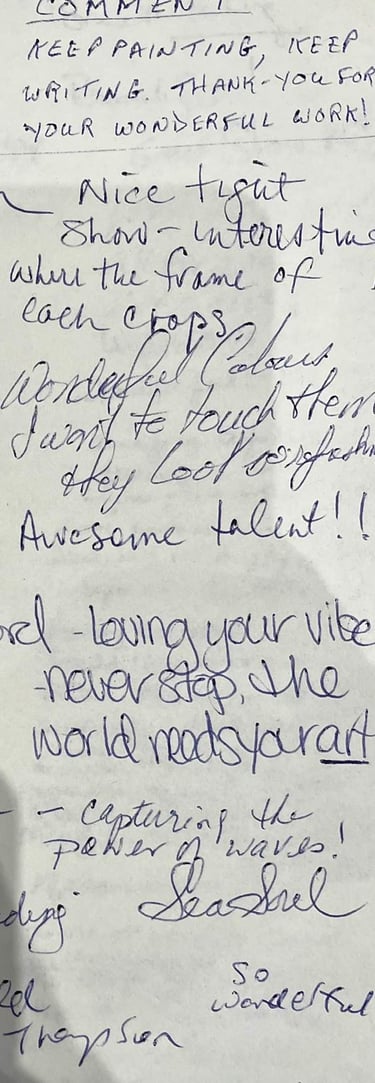 COMMENT
KEEP PAINTING, KEEP
WRITING. THANK-YOU FOR
YOUR WONDERFUL WORK!
Nice tight
Show - interestin
where the frame of
each crops
Wonderful Colours
I want to touch them
they look so refreshin
Awesome talent!!
- loving your vibe
- never stop, the
world needs your art
- - capturing the
power of waves!
Sea Soul
So
wonderful
Thompson